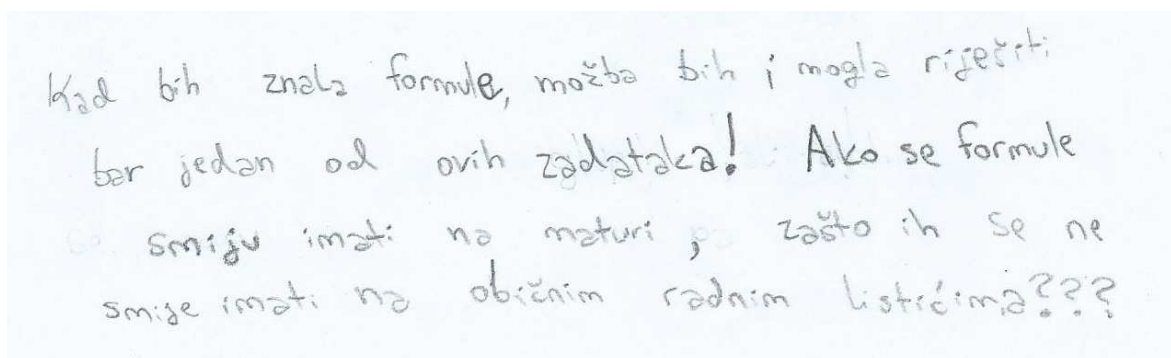 Kad bih znala formule, možba bih i mogla riješiti
bar jedan od ovih zadataka! Ako se formule
smiju imati na maturi, zašto ih se ne
smije imati na običnim radnim listićima???